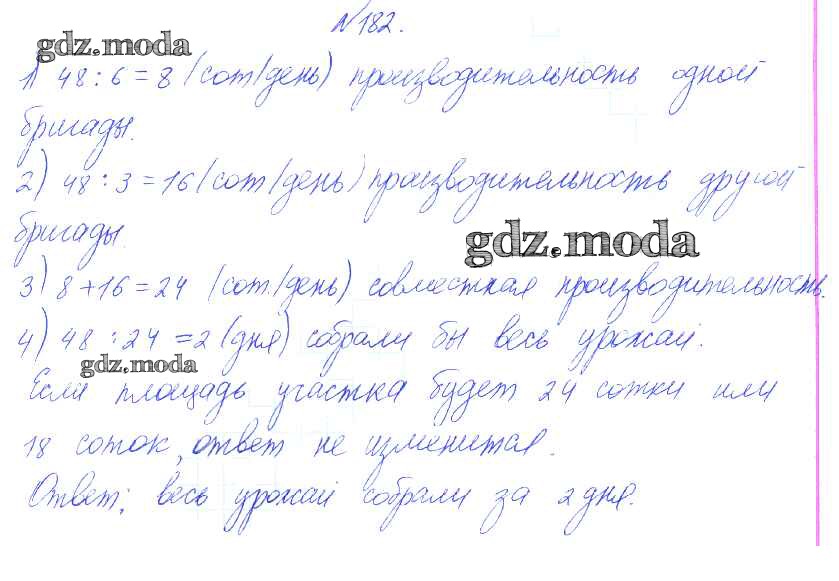 №182.
gdz.moda
1) 48 : 6 = 8 (сот/день) производительность одной
бригады.
2) 48 : 3 = 16 (сот/день) производительность другой
бригады.
gdz.moda
3) 8 + 16 = 24 (сот./день) совместная производительность.
4) 48 : 24 = 2 (дня) собрали бы весь урожай.
gdz.moda
Если площадь участка будет 24 сотки или
18 соток, ответ не изменится.
Ответ: весь урожай собрали за 2 дня.